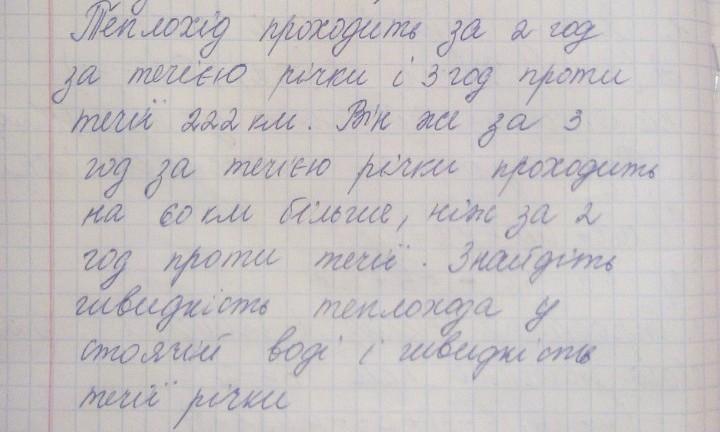 Теплохід проходить за 2 год
за течією річки і 3 год проти
течії 222 км. Він же за 3
год за течією річки проходить
на 60 км більше, ніж за 2
год проти течії. Знайдіть
швидкість теплохода у
стоячій воді і швидкість
течії річки